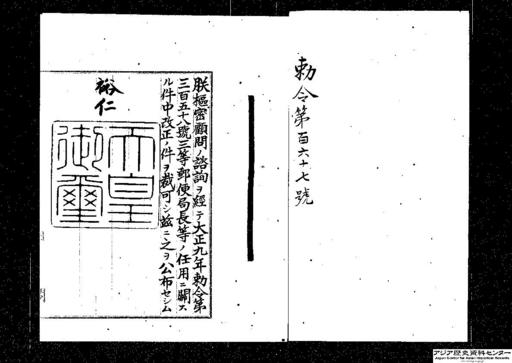 勅令第百六十七號
朕樞密顧問ノ諮詢ヲ經テ大正九年勅令第
三百五十八號三等郵便局長等ノ任用ニ關ス
ル件中改正ノ件ヲ裁可シ茲ニ之ヲ公布セシム
裕仁
天皇
御璽
アジア歴史資料センター
Japan Center for Asian Historical Records